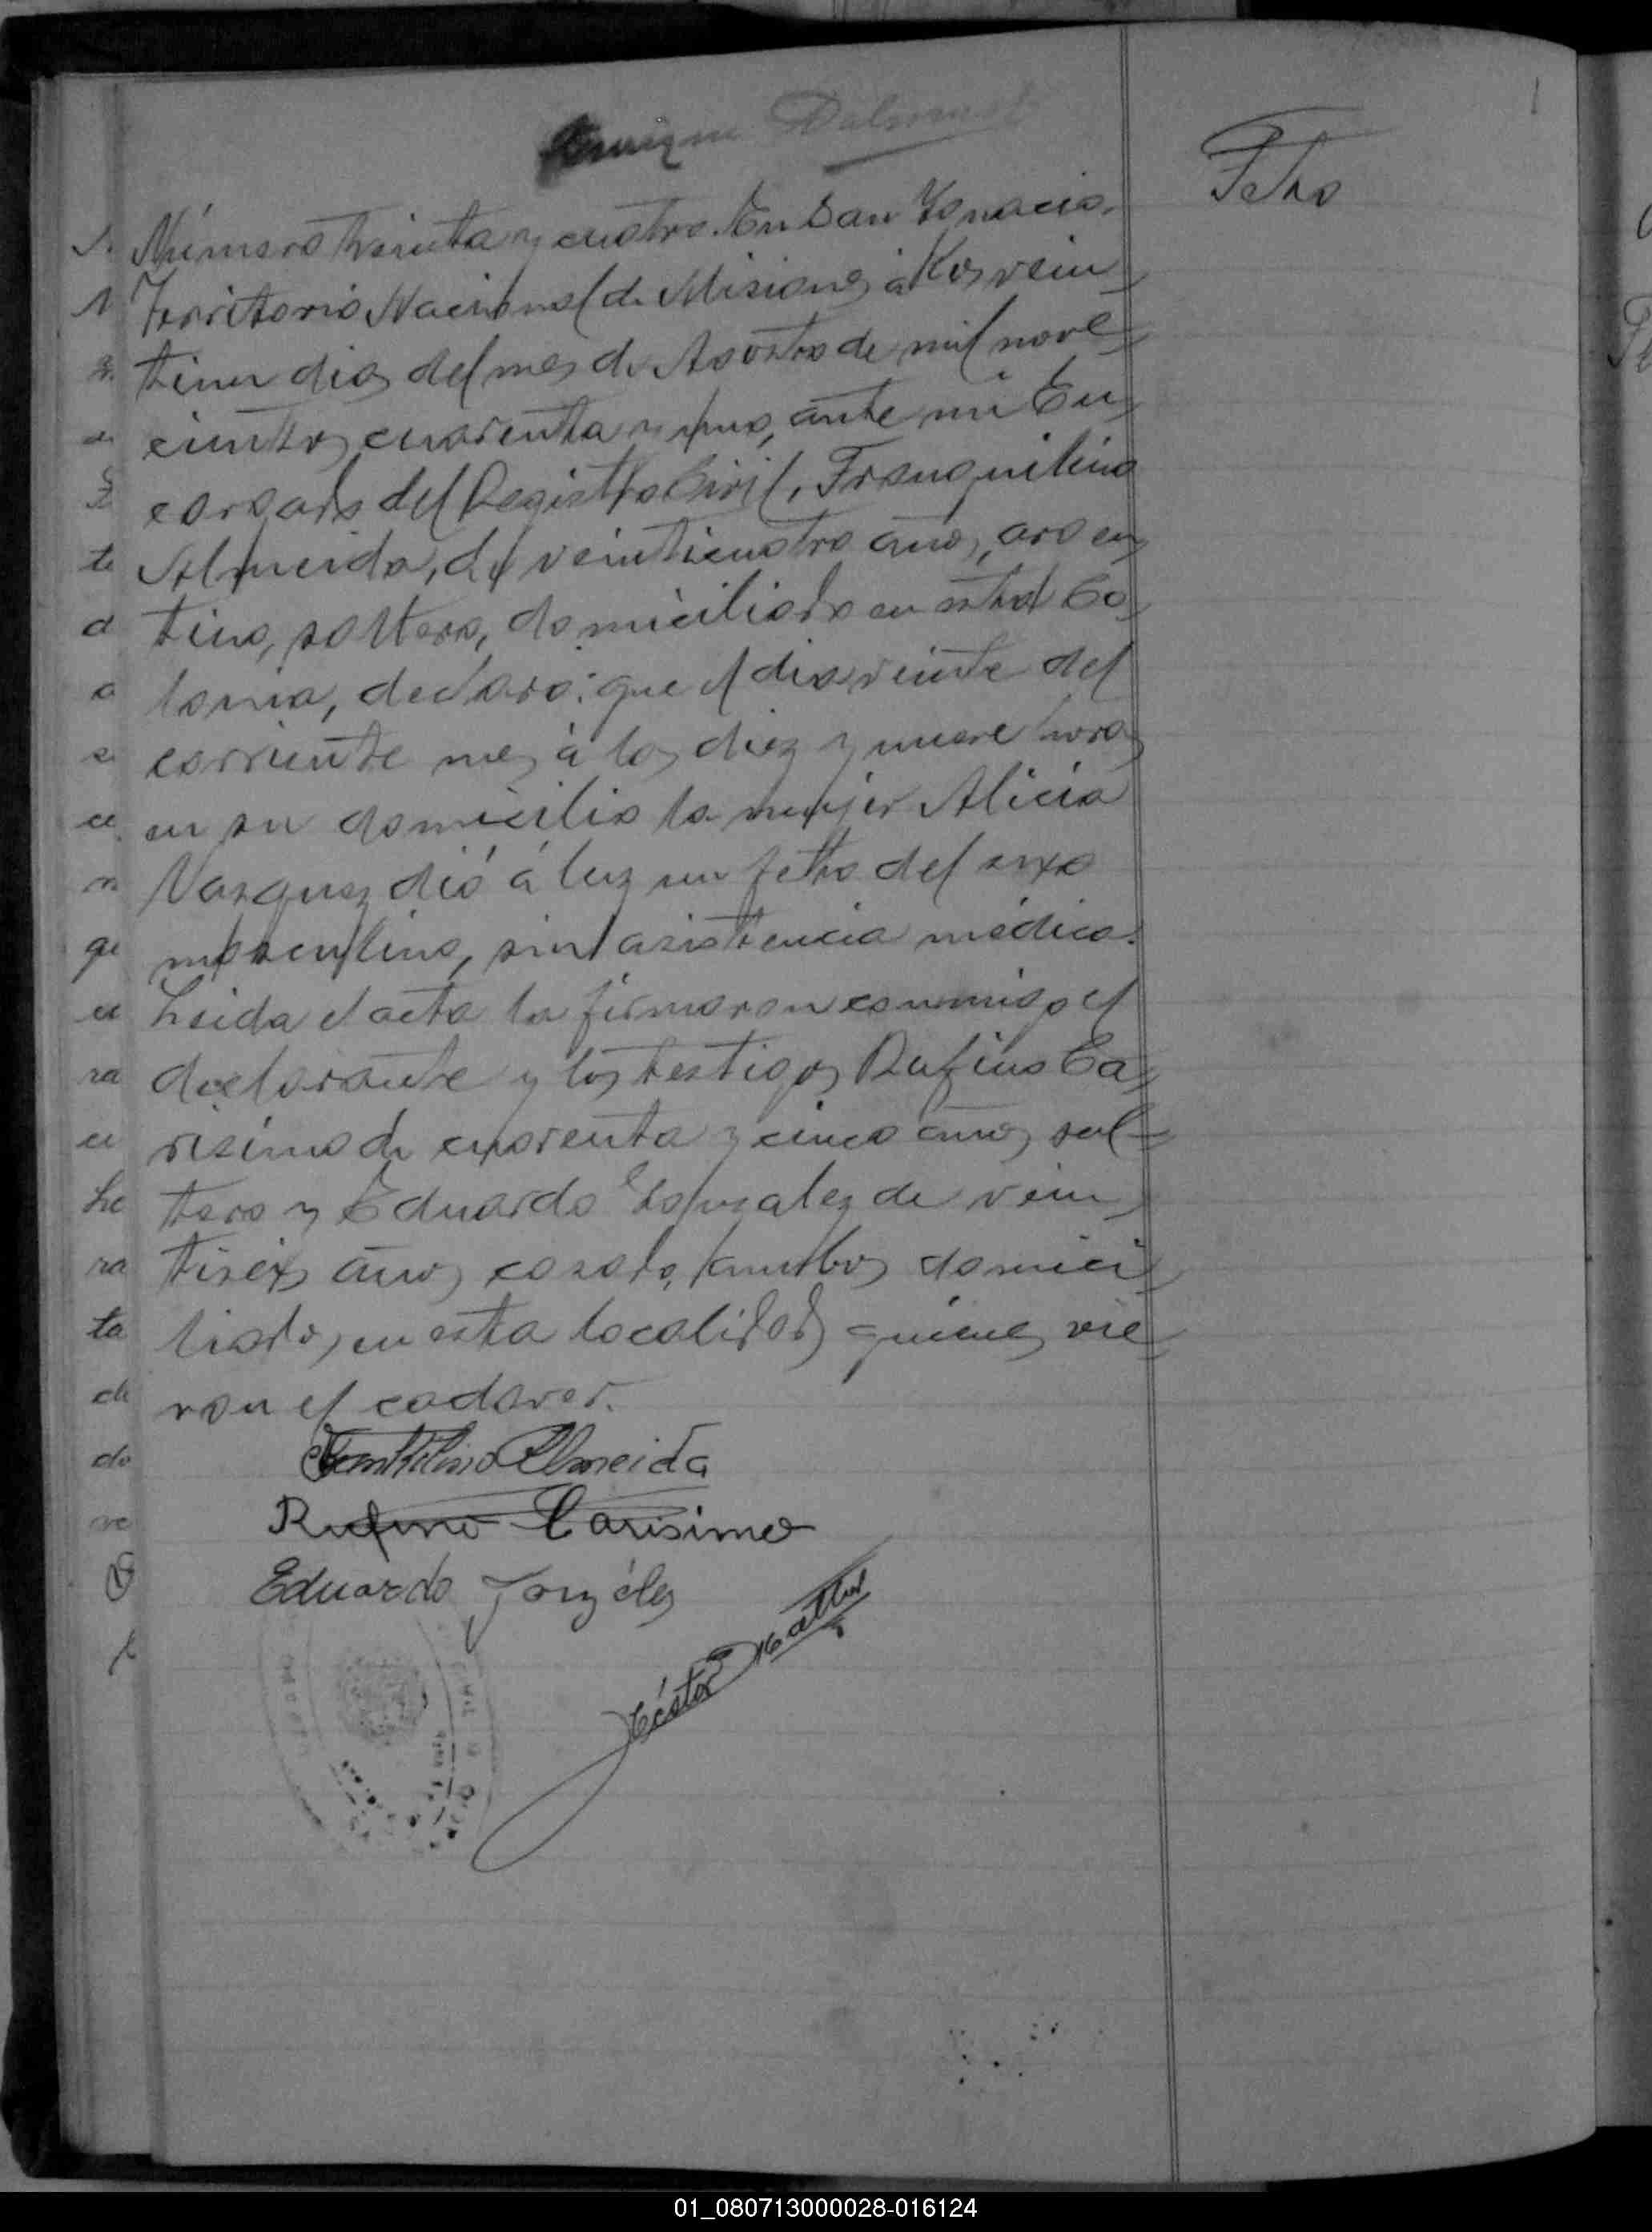 Feto
Número treinta y cuatro. En San Ygnacio.
Territorio Nacional de Misiones á los vein
tiun dias del mes de Agosto de mil nove
cientos cuarenta y uno, ante mi En
cargado del Registro Civil, Tranquilino
Almeida, de veinticuatro años, argen
tino, soltero, domiciliado en esta Co
lonia, declaró: que el dia veinte del
corriente mes á las diez y nueve horas
en su domicilio la mujer Alicia
Vazquez dió á luz un feto del sexo
masculino, sin asistencia médica.
Leida el acta la firmaron conmigo el
declarante y los testigos Rufino Ca
risimo de cuarenta y cinco años, sol-
tero y Eduardo Gonzalez de vein
tiseis años, casado, ambos domici
liados en esta localidad quienes vie
ron el cadaver.
Almeida
Rufino Carisimo
Eduardo Gonzáles
Héctor
01_080713000028-016124